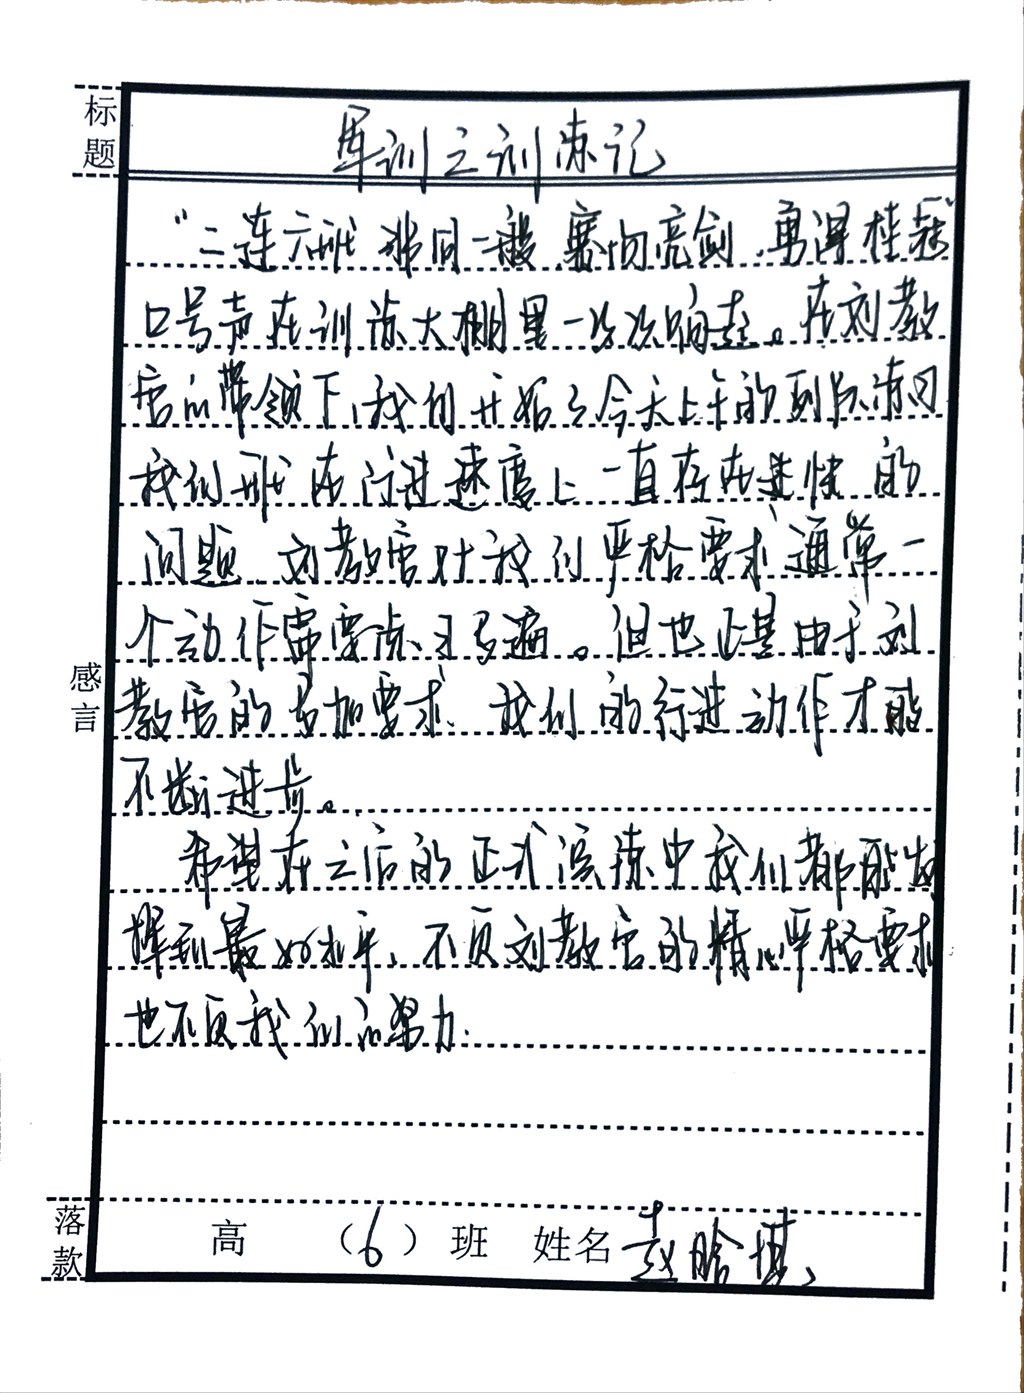 标题
军训之训练记
"二连六班 非同一般 赛场亮剑 勇得桂冠"
口号声在训练大棚里一次次响起。在刘教
官的带领下,我们开始了今天上午的列队练习
我们班在行进速度上一直存在进快的
问题 刘教官对我们严格要求 通常一
个动作需要练习多遍。但也正是由于刘
教官的多加要求、我们的行进动作才能
不断进步。
感言
希望在之后的正式演练中我们都能发
挥到最好水平、不负刘教官的精心严格要求
也不负我们的努力.
落款
高 (6)班 姓名 赵晗